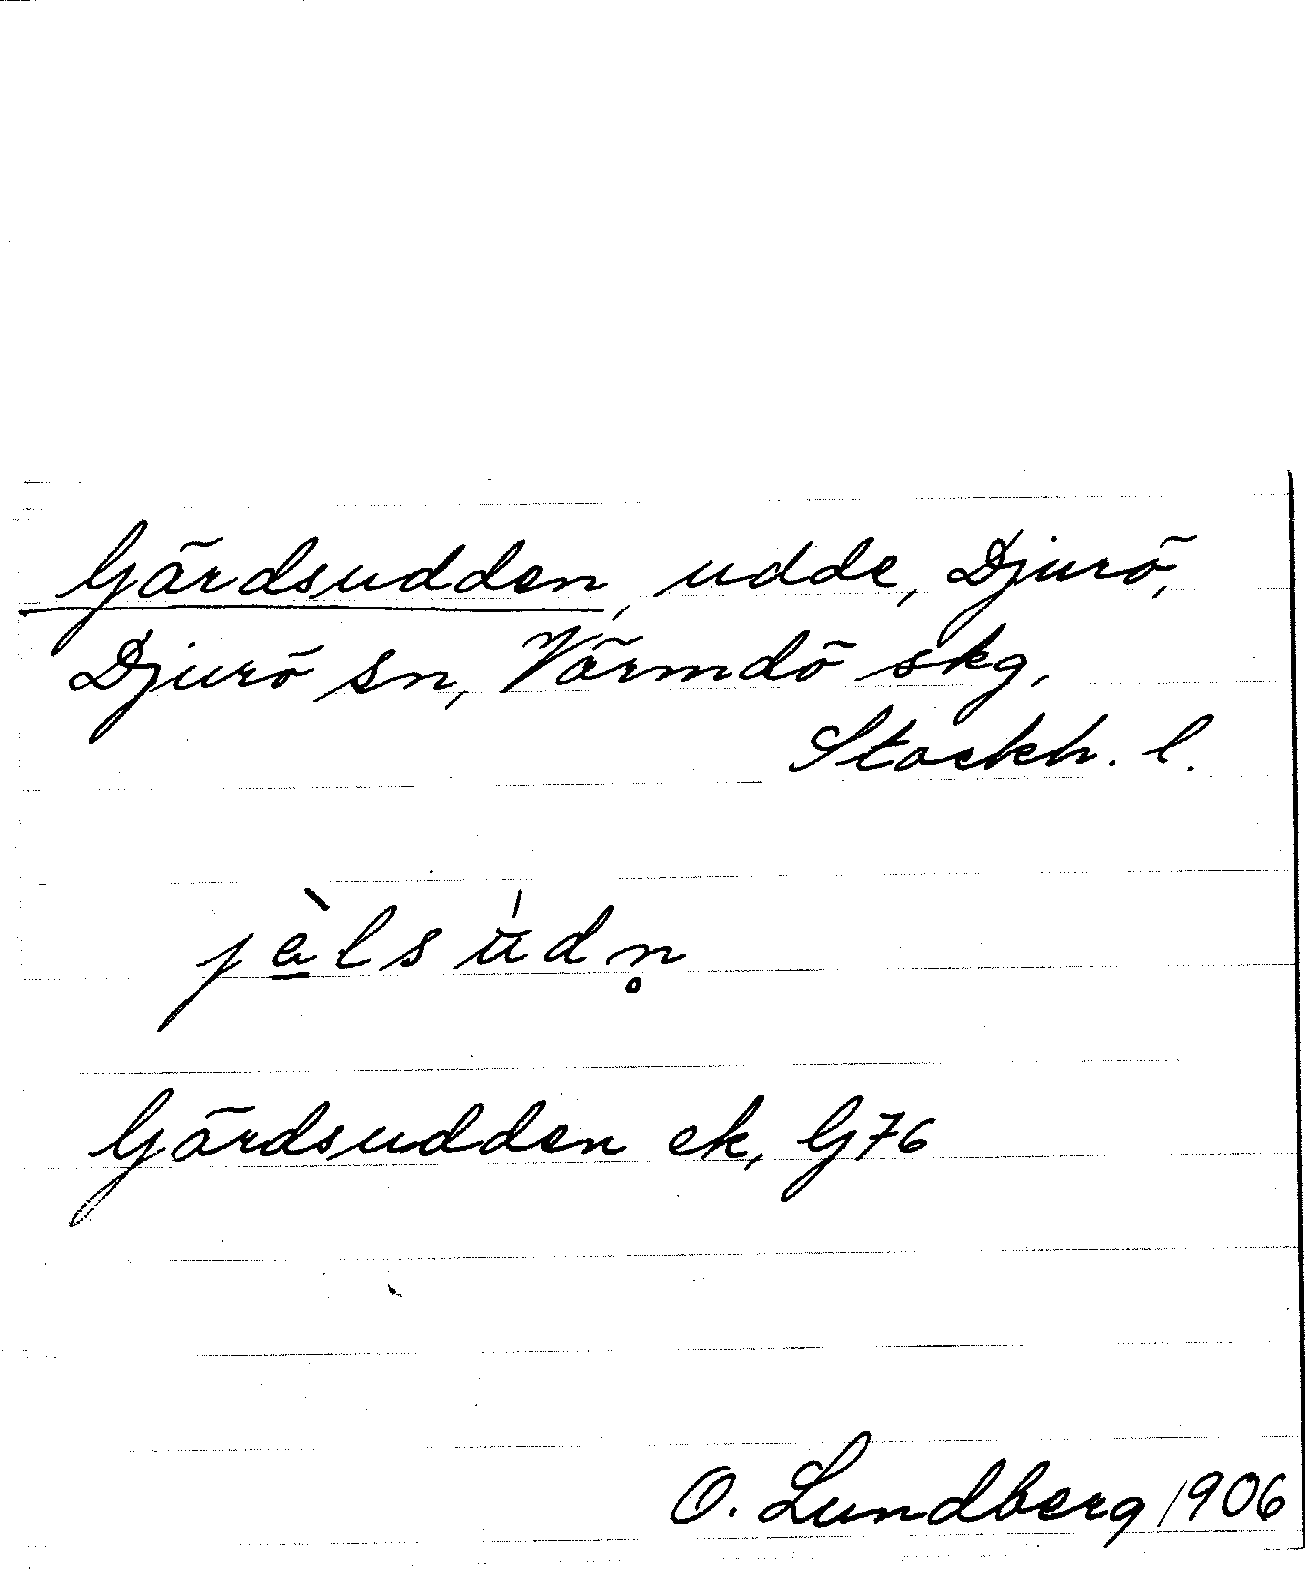 Gärdsudden, udde, Djurö,
Djurö sn, Värmdö skg,
Stockh. l.
jàls údn̥
Gärdsudden ek, G76
O. Lundberg 1906